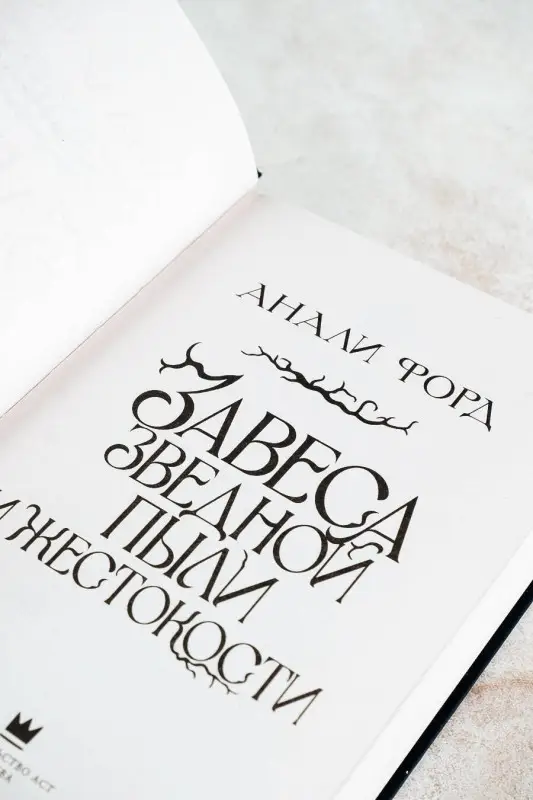 АНАЛИ ФОРД
ЗАВЕСА
ЗВЕДНОЙ
ПЫЛИ
И ЖЕСТОКОСТИ
АСТ